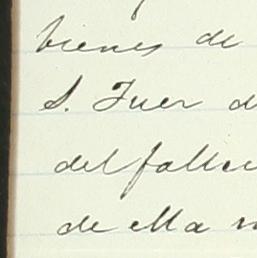 bienes de
S. Juer d
del falleci
de ella